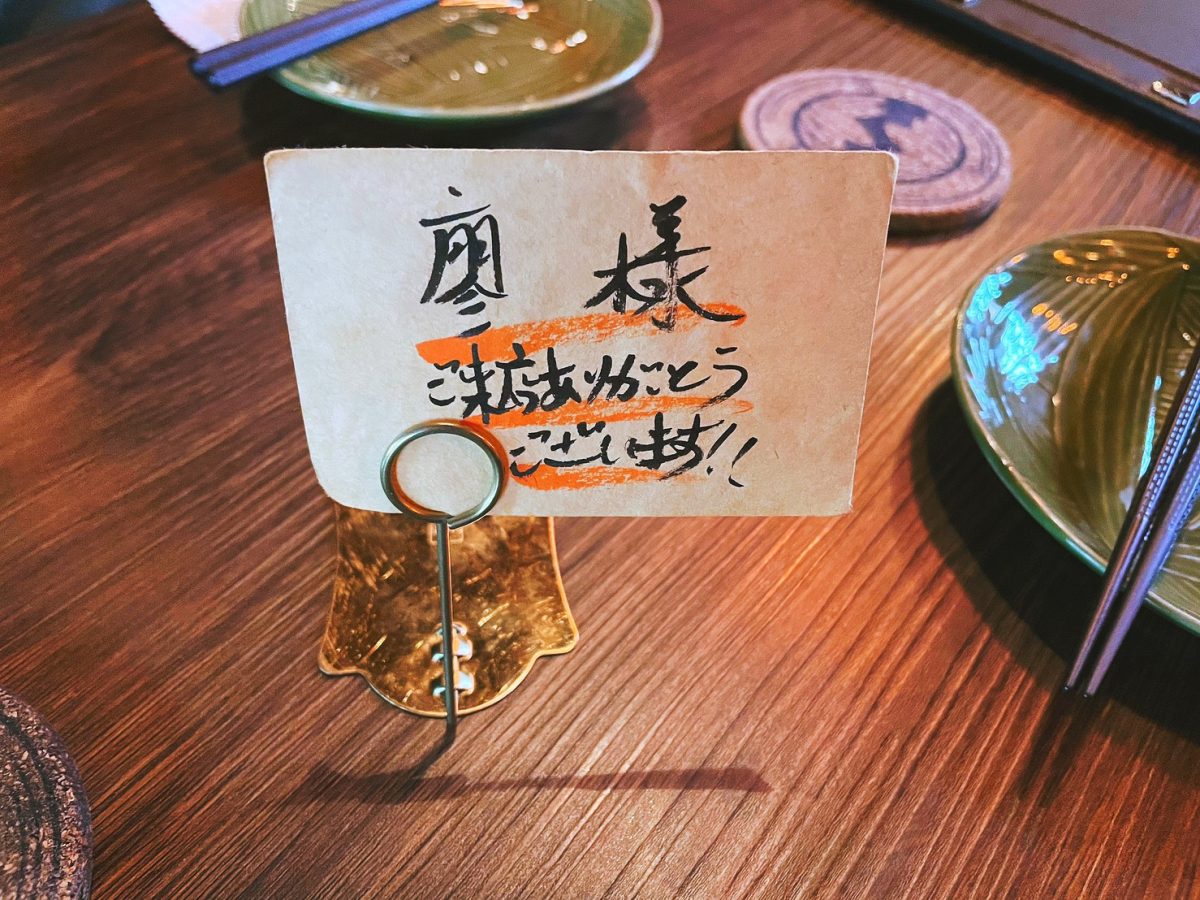 廖 様
ご来店ありがとう
ございます!!